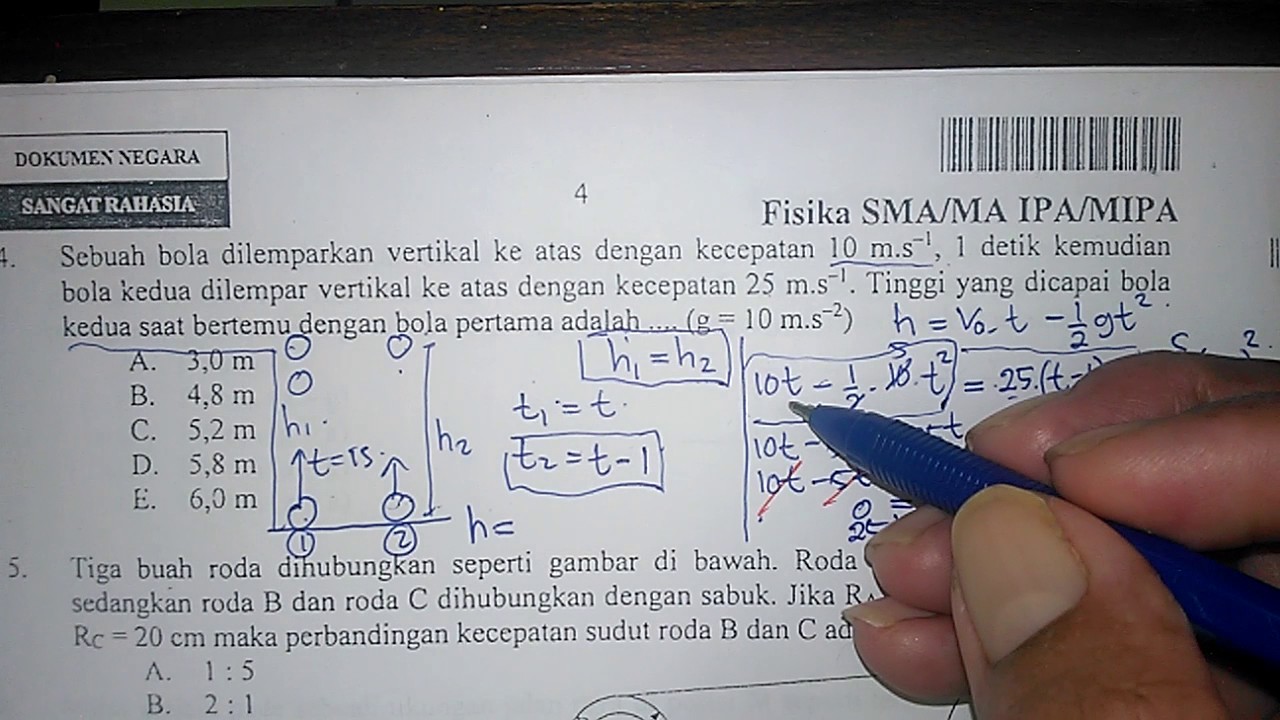 DOKUMEN NEGARA
SANGAT RAHASIA
4
Fisika SMA/MA IPA/MIPA
4. Sebuah bola dilemparkan vertikal ke atas dengan kecepatan 10 m.s⁻¹, 1 detik kemudian
bola kedua dilempar vertikal ke atas dengan kecepatan 25 m.s⁻¹. Tinggi yang dicapai bola
kedua saat bertemu dengan bola pertama adalah .... (g = 10 m.s⁻²)
h = V₀.t - ½gt²
A. 3,0 m
B. 4,8 m
C. 5,2 m
D. 5,8 m
E. 6,0 m
h₁
t=1s
h₂
① ②
h₁ = h₂
t₁ = t
t₂ = t-1
h=
10t - ½.10.t² = 25.(t-
5
10t -
10t -5t
0 =
5. Tiga buah roda dihubungkan seperti gambar di bawah. Roda
sedangkan roda B dan roda C dihubungkan dengan sabuk. Jika R
R_C = 20 cm maka perbandingan kecepatan sudut roda B dan C ad
A. 1 : 5
B. 2 : 1